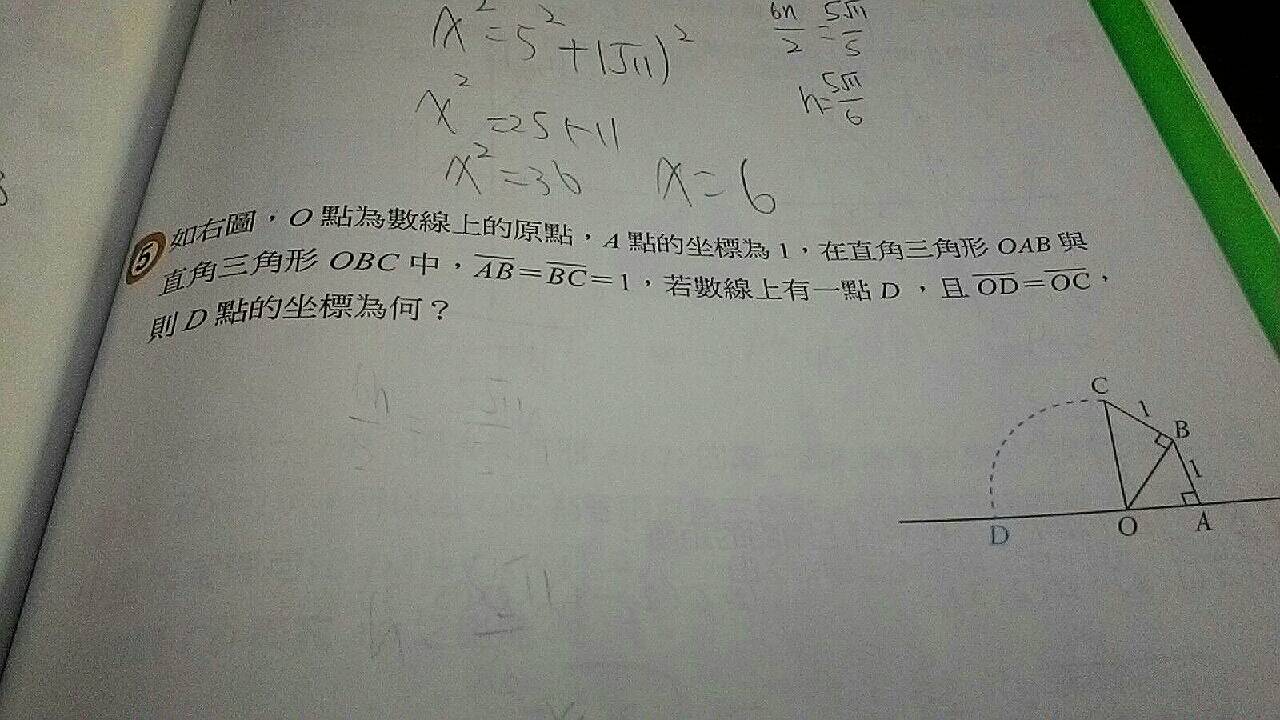 x² = 5² + (√11)²
6h/2 = 5√11/5
x² = 25 + 11
h = 5√11/6
x² = 36 x = 6
5 如右圖，O 點為數線上的原點，A 點的坐標為 1，在直角三角形 OAB 與
直角三角形 OBC 中，A̅B̅＝B̅C̅＝1，若數線上有一點 D，且 O̅D̅＝O̅C̅，
則 D 點的坐標為何？
C
1
B
1
D
O
A